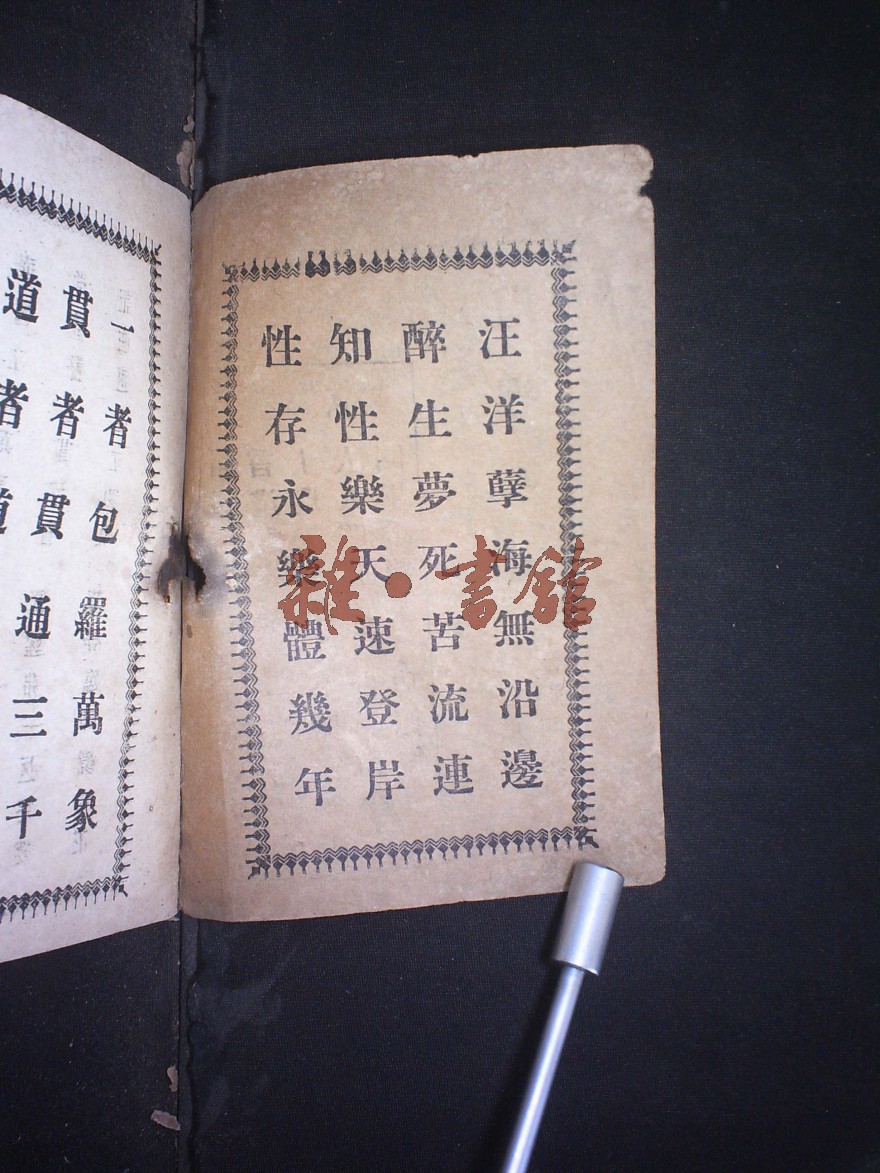 汪洋孽海無沿邊
醉生夢死苦流連
知性樂天速登岸
性存永樂體幾年
一者包羅萬象
貫者貫通三千
道者道
雜·書館